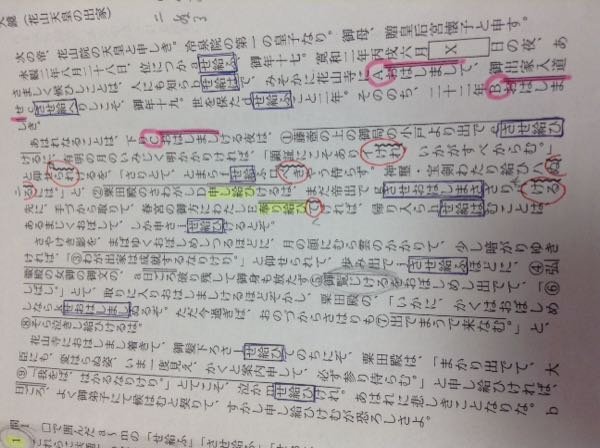 大鏡(花山天皇の出家)
次の帝、花山院の天皇と申しき。冷泉院の第一の皇子なり。御母、贈皇后宮懐子と申す。
永観二年八月二十八日、位につかa せ給ふ、御年十七。寛和二年丙戌六月 X 日の夜、あ
さましく候ひしことは、人にも知らb せ給はで、みそかに花山寺にAおはしまして、御出家入道
せc させ給へりしこそ。御年十九。世を保たd せ給ふこと二年。そののち、二十二年Bおはしま
しき。
あはれなることは、下り Cおはしましける夜は、①藤壺の上の御局の小戸より出でe させ給ひ
けるに、有明の月のいみじく明かかりければ、「顕証にこそありけれ。いかがすべからむ。」
と仰せられけるを、「さりとて、とまらf せ給ふべきやう侍らず。神璽・宝剣わたり給ひぬ
るには。」と、②粟田殿のさわがしD申し給ひけるは、まだ帝出でg させおはしまさざりける
先に、手づから取りて、春宮の御方にわたしE奉り給ひてければ、帰り入らh せ給はむことは
あるまじくおぼして、しか申さi せ給ひけるとぞ。
さやけき影を、まばゆくおぼしめしつるほどに、月の顔にむら雲のかかりて、少し暗がりゆき
ければ、「③わが出家は成就するなりけり。」と仰せられて、歩み出でj させ給ふほどに、④弘
徽殿の女御の御文の、a日ごろ破り残して御身も放たず⑤御覧じけるをおぼしめし出でて、「⑥
しばし。」とて、取りに入りおはしましけるほどぞかし、粟田殿の、「いかに、かくはおぼしめ
しならk せおはしましぬるぞ。ただ今過ぎば、おのづからさはりも⑦出でまうで来なむ。」と、
⑧そら泣きし給ひけるは。
花山寺におはしまし着きて、御髪下ろさl せ給ひてのちにぞ、粟田殿は、「まかり出でて、大
臣にも、変はらぬ姿、いま一度見え、かくと案内申して、必ず参り侍らむ。」と申し給ひければ、
⑨「我をば、はかるなりけり。」とてこそ、泣かm せ給ひけれ。あはれに悲しきことなりな。b
日ごろ、よく御弟子にて候はむと契りて、すかし申し給ひけむが恐ろしさよ。
問1 口で囲んだa～mの「せ給ふ」「させ給ふ」